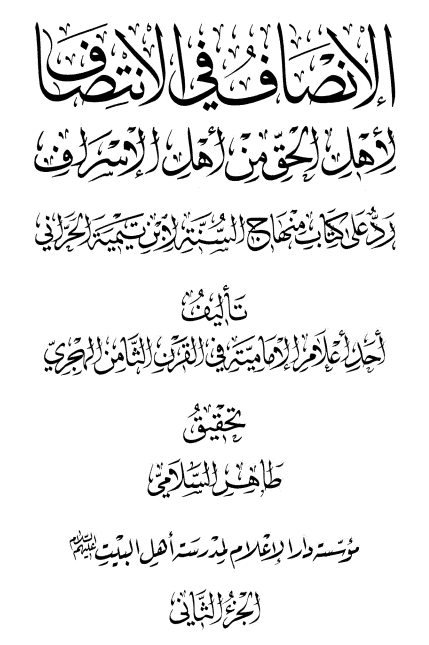 الإنْصَافُ في الانْتِصَافِ
لأهْلِ الحَقِّ مِنْ أهْلِ الإسْرَافِ
رَدٌّ عَلى كِتَابِ مِنْهَاجِ السُّنَّةِ لابْنِ تَيْمِيَةَ الحَرَّاني
تَأليفُ
أحَدِ أعْلامِ الإمَامِيَّةِ في القَرْنِ الثَّامِنِ الهِجْرِيّ
تَحْقيقُ
طَاهِرِ السَّلامِيّ
مُؤَسَّسَة دار الإعْلام لِمَدْرَسَة أهْلِ البَيْتِ عليهم السلام
الجُزْءُ الثَّاني